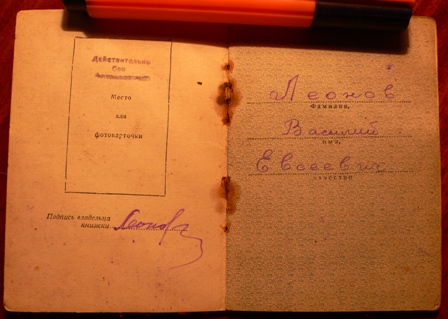 Действительно
без
Место
для
фотокарточки
Подпись владельца
книжки Леонов
Леонов
Фамилия,
Василий
имя,
Евсеевич
отчество